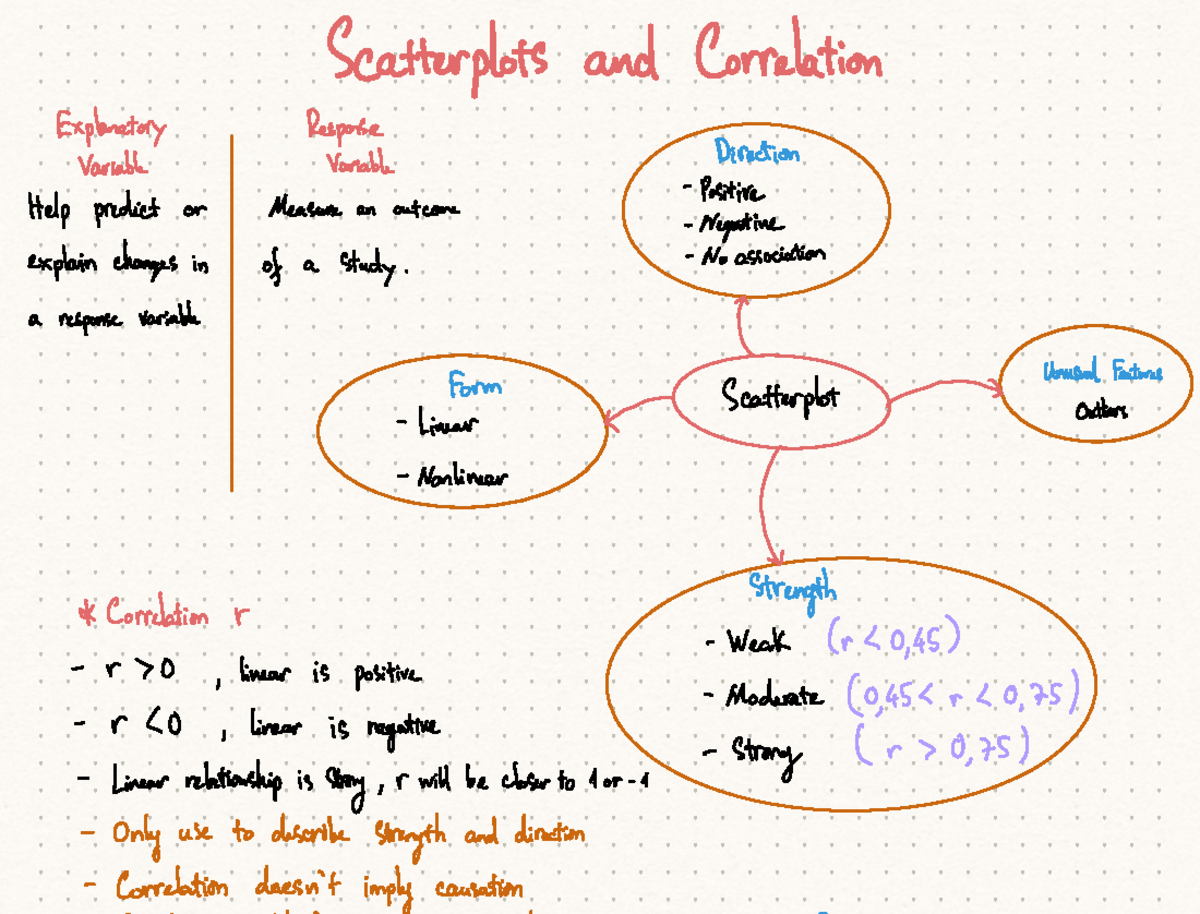 Scatterplots and Correlation
Explanatory
Variable
Help predict or
explain changes in
a response variable
Response
Variable
Measure an outcome
of a study.
Direction
- Positive
- Negative
- No association
Scatterplot
Form
- Linear
- Nonlinear
Unusual Features
Outliers
Strength
- Weak (r < 0,45)
- Moderate (0,45 < r < 0,75)
- Strong (r > 0,75)
* Correlation r
- r > 0 , linear is positive
- r < 0 , linear is negative
- Linear relationship is strong, r will be closer to 1 or -1
- Only use to describe strength and direction
- Correlation doesn't imply causation